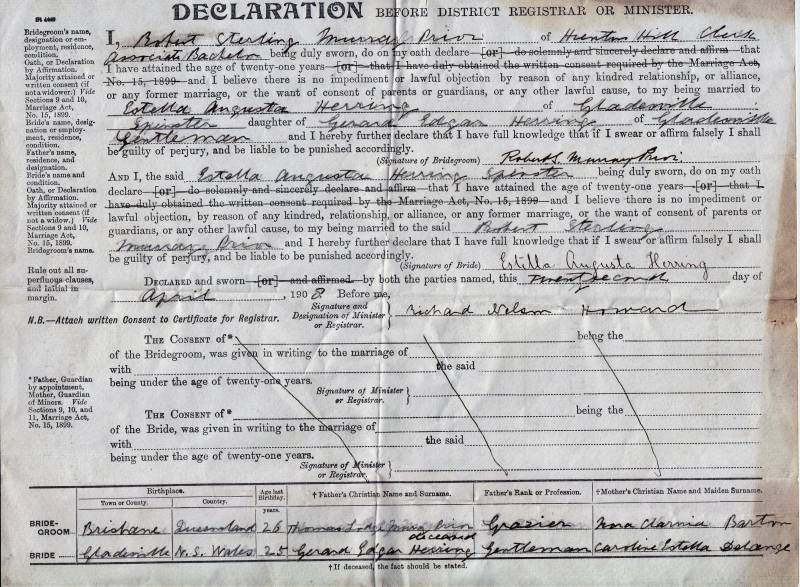 DECLARATION BEFORE DISTRICT REGISTRAR OR MINISTER.
Bridegroom's name,
designation or employment, residence,
condition.
Oath, or Declaration
by Affirmation.
Majority attained or
written consent (if
not a widower.) Vide
Sections 9 and 10,
Marriage Act,
No. 15, 1899.
Bride's name, designation or employment, residence,
condition.
Father's name,
residence, and
designation.
Bride's name and
condition.
Oath, or Declaration
by Affirmation.
Majority attained or
written consent (if
not a widow.) Vide
Sections 9 and 10,
Marriage Act,
No. 15, 1899.
Bridegroom's name.
Rule out all superfluous clauses,
and initial in
margin.
I, Robert Sterling Murray Prior of Hunters Hill Clerk
Associate Bachelor being duly sworn, do on my oath declare [or] do solemnly and sincerely declare and affirm that
I have attained the age of twenty-one years [or] that I have duly obtained the written consent required by the Marriage Act,
No. 15, 1899 and I believe there is no impediment or lawful objection by reason of any kindred relationship, or alliance,
or any former marriage, or the want of consent of parents or guardians, or any other lawful cause, to my being married to
Estella Augusta Herring of Gladesville
Spinster daughter of Gerard Edgar Herring of Gladesville
Gentleman and I hereby further declare that I have full knowledge that if I swear or affirm falsely I shall
be guilty of perjury, and be liable to be punished accordingly.
(Signature of Bridegroom) Robert S. Murray Prior
AND I, the said Estella Augusta Herring Spinster being duly sworn, do on my oath
declare [or] do solemnly and sincerely declare and affirm that I have attained the age of twenty-one years [or] that I
have duly obtained the written consent required by the Marriage Act, No. 15, 1899 and I believe there is no impediment or
lawful objection, by reason of any kindred, relationship, or alliance, or any former marriage, or the want of consent of parents or
guardians, or any other lawful cause, to my being married to the said Robert Sterling
Murray Prior and I hereby further declare that I have full knowledge that if I swear or affirm falsely I shall
be guilty of perjury, and be liable to be punished accordingly.
(Signature of Bride) Estella Augusta Herring
DECLARED and sworn [or] and affirmed by both the parties named, this twenty second day of
April 1908 Before me,
Signature and
Designation of Minister
or Registrar.
Richard Nelson Howard
N.B.—Attach written Consent to Certificate for Registrar.
THE CONSENT OF* being the
of the Bridegroom, was given in writing to the marriage of
with the said
being under the age of twenty-one years.
Signature of Minister
or Registrar.
* Father, Guardian
by appointment,
Mother, Guardian
of Minors. Vide
Sections 9, 10, and
11, Marriage Act,
No. 15, 1899.
THE CONSENT OF* being the
of the Bride, was given in writing to the marriage of
with the said
being under the age of twenty-one years.
Signature of Minister
or Registrar.
Birthplace. Age last Birthday. † Father's Christian Name and Surname. Father's Rank or Profession. † Mother's Christian Name and Maiden Surname.
Town or County. Country. years.
BRIDEGROOM Brisbane Queensland 26 Thomas Lodge Murray Prior deceased Grazier Nora Clarina Barton
BRIDE Gladesville N.S. Wales 25 Gerard Edgar Herring Gentleman Caroline Estella Delange
† If deceased, the fact should be stated.